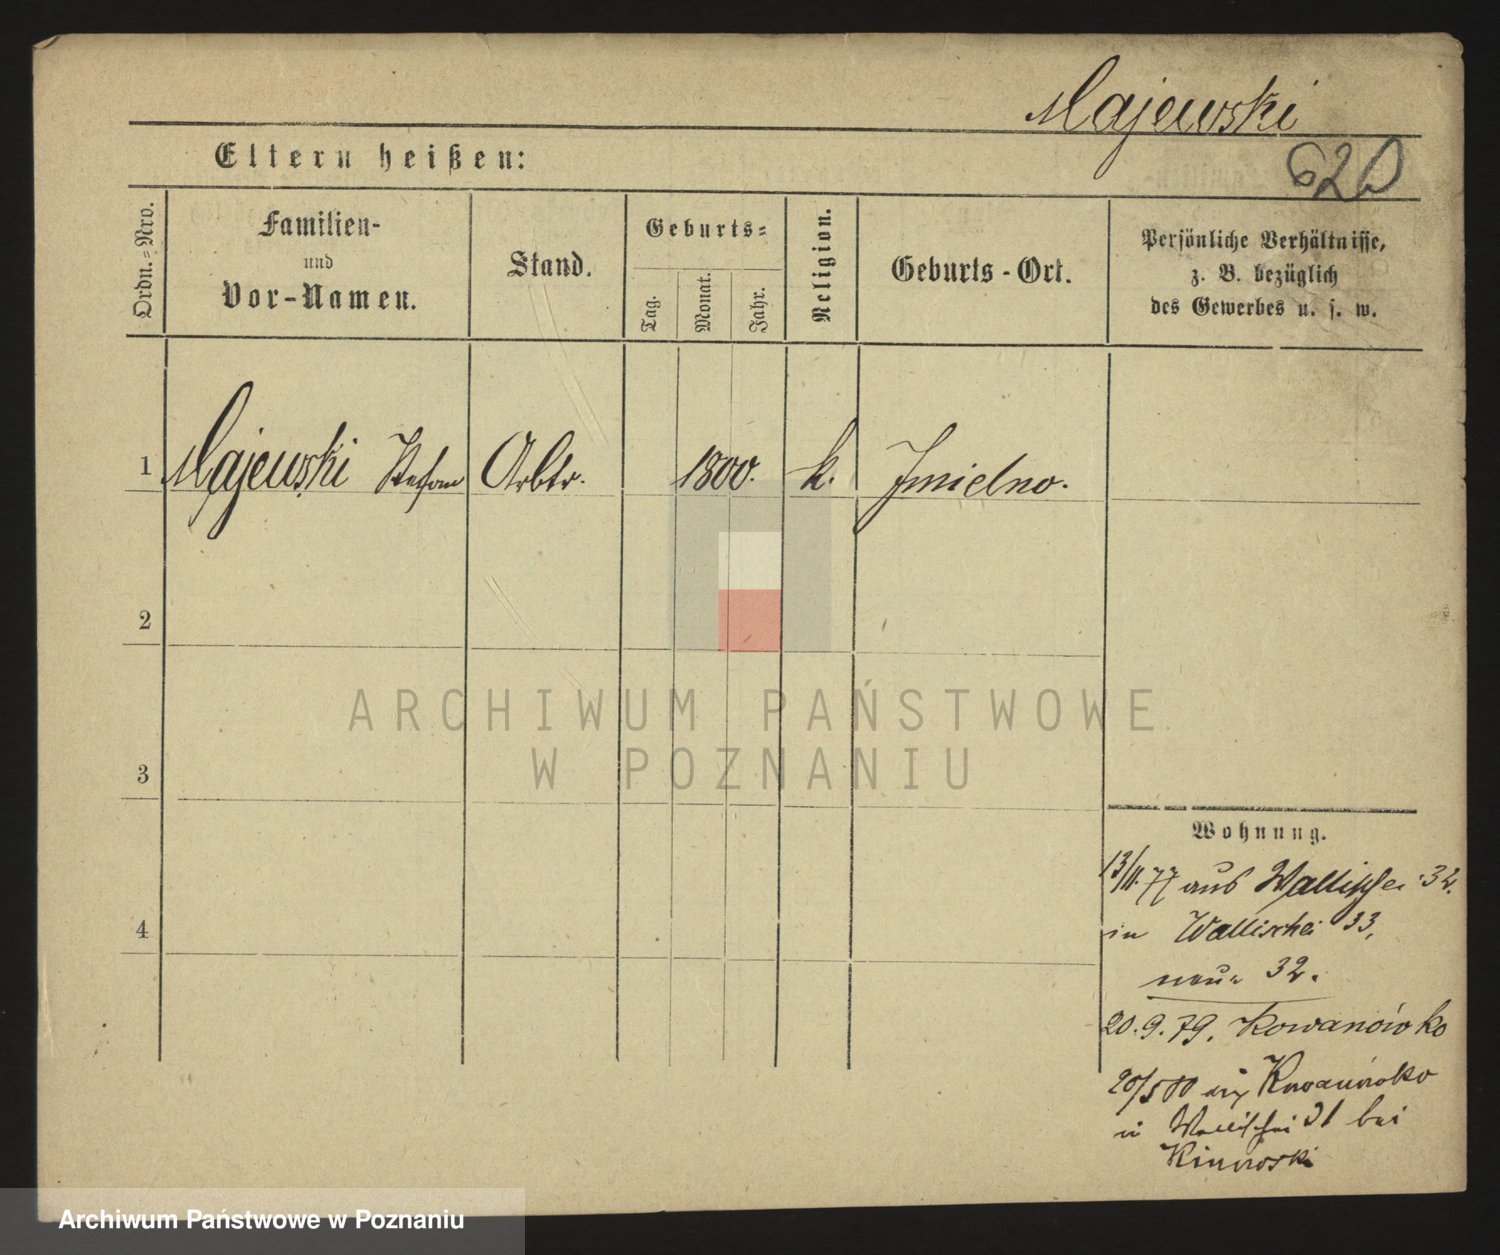 Majewski
620
Eltern heißen:
Ordn.-Nro.
Familien-
und
Vor-Namen.
Stand.
Geburts-
Tag.
Monat.
Jahr.
Religion.
Geburts-Ort.
Persönliche Verhältnisse,
z. B. bezüglich
des Gewerbes u. s. w.
1 Majewski Stefan Arbtr. 1800. k. Jmielno.
2
3
4
ARCHIWUM PAŃSTWOWE
W POZNANIU
Wohnung.
13/11.77 aus Wallischei 32.
in Wallischei 33,
neu 32.
20.9.79. Kowanówko
20/5 80 Kowanówko
in Wallischei 31 bei
Archiwum Państwowe w Poznaniu